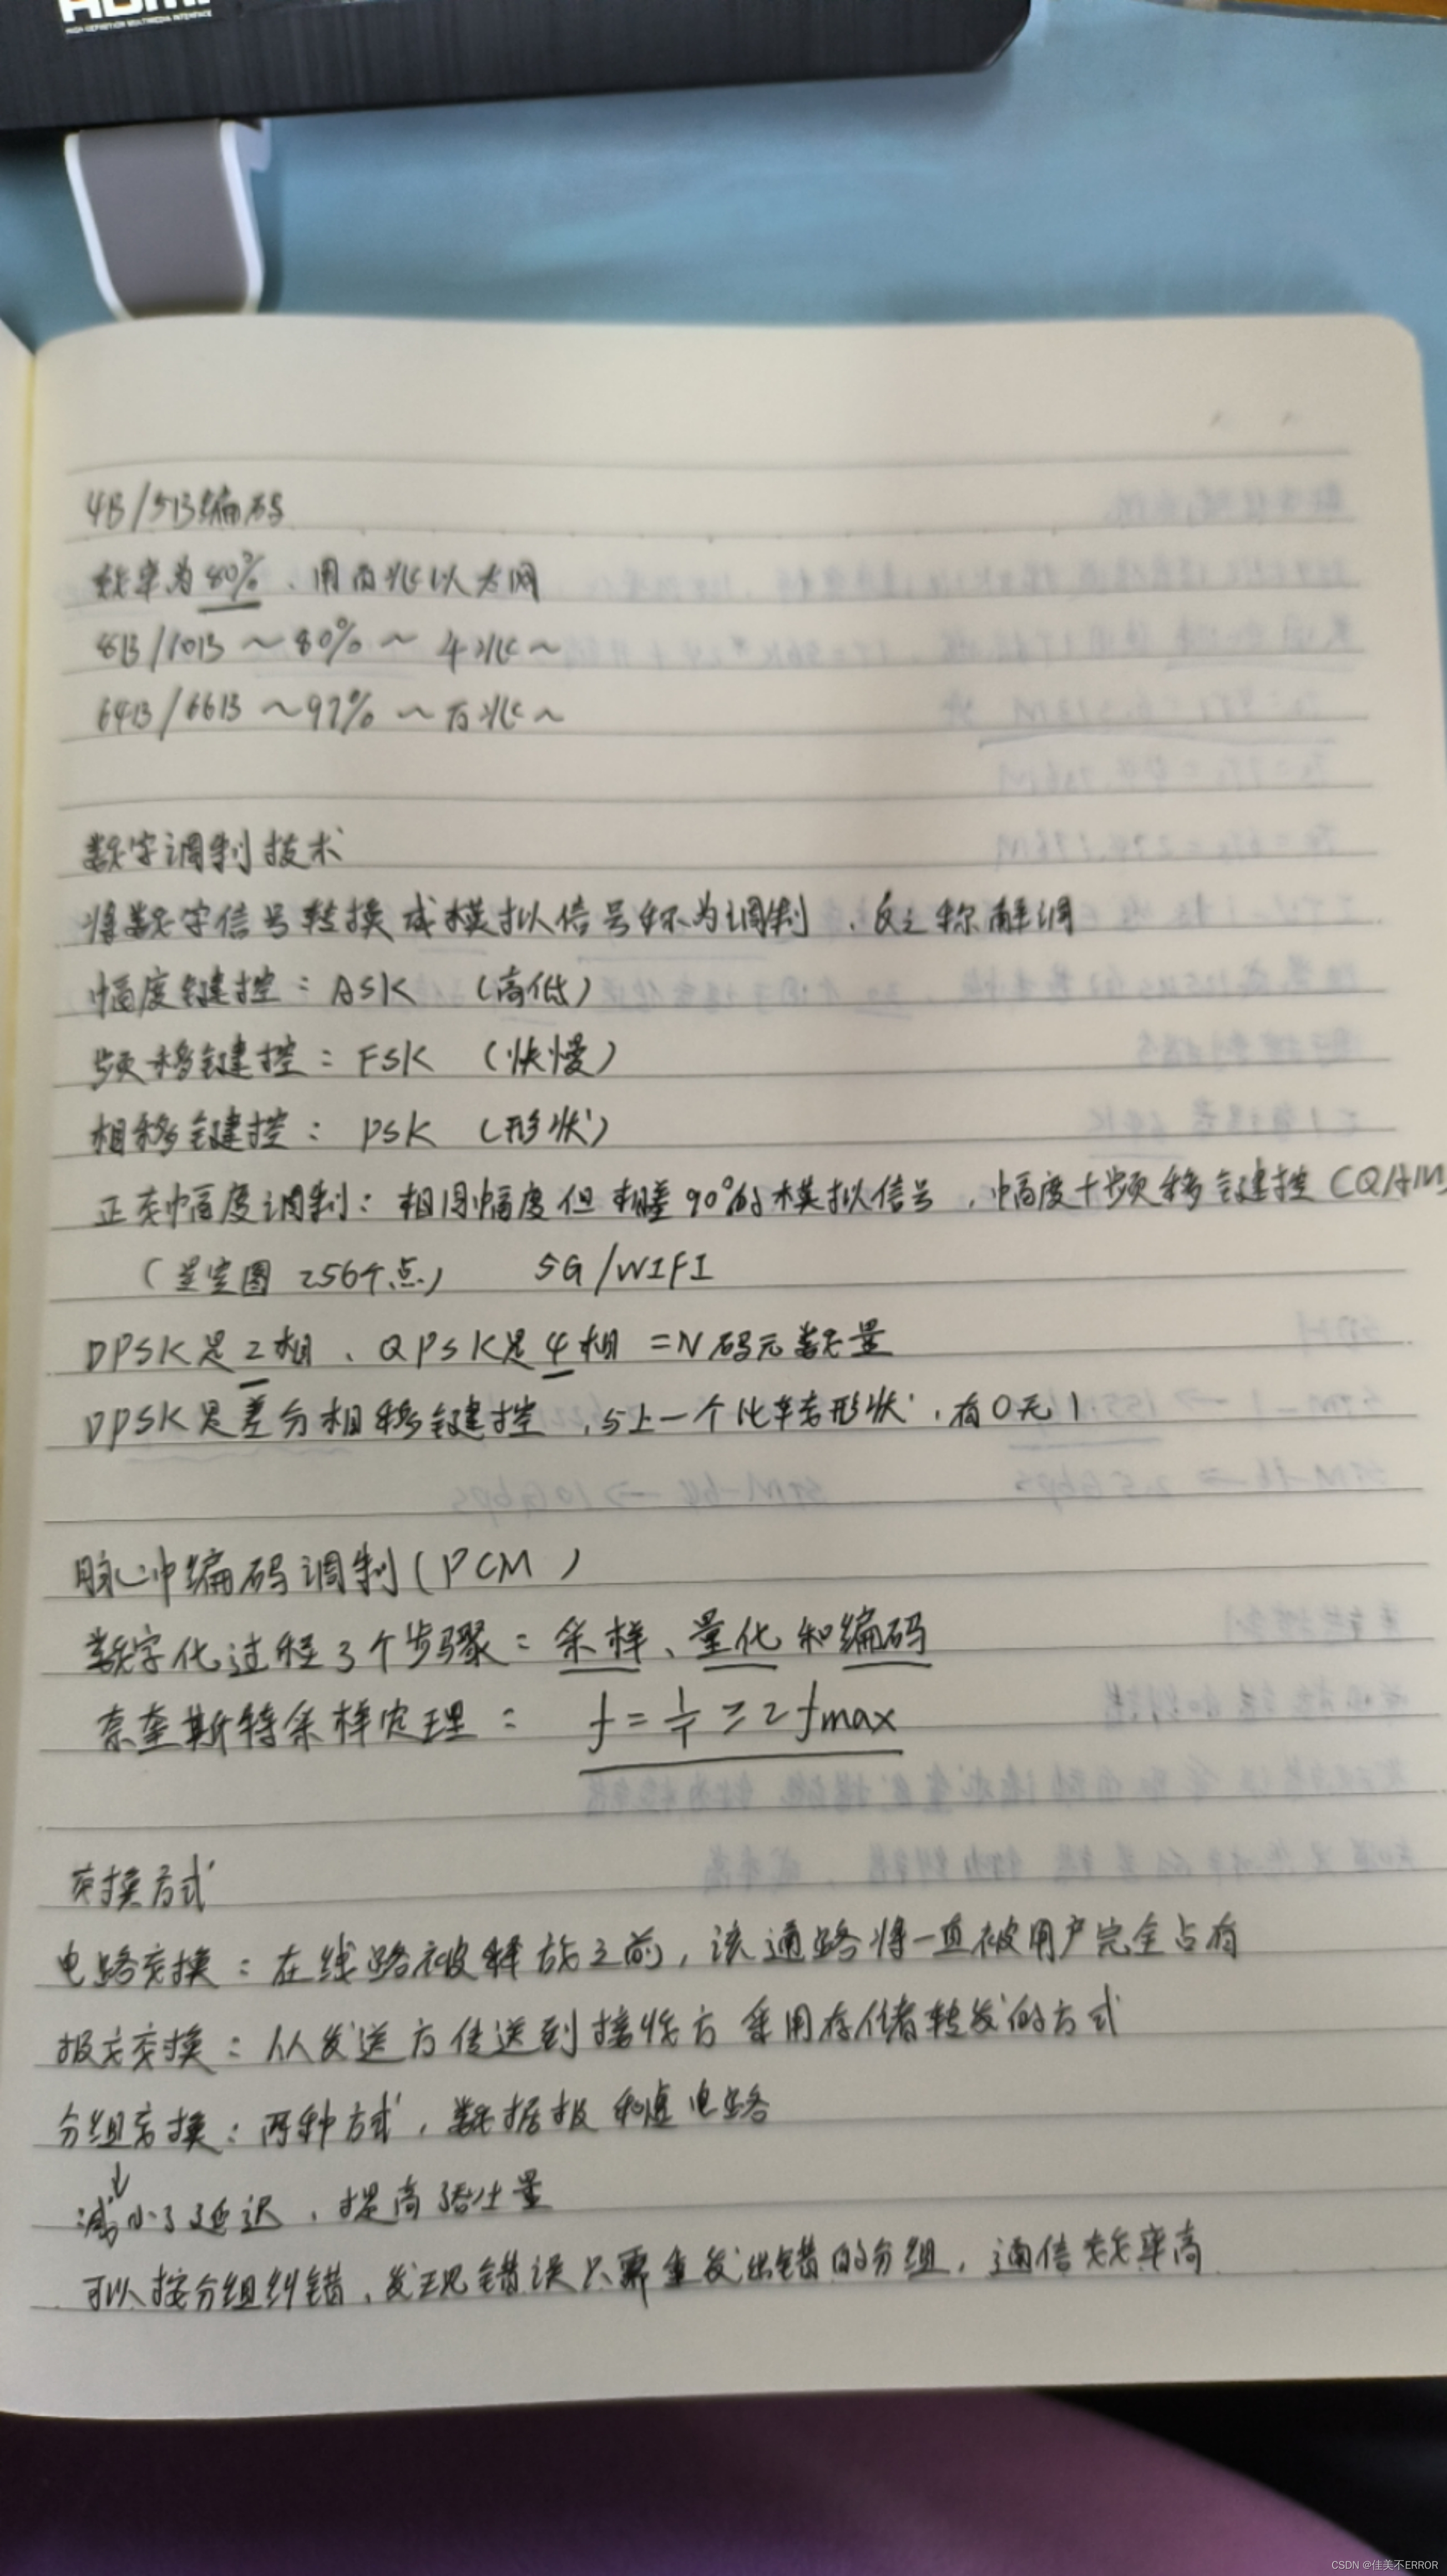 HDMI
HIGH-DEFINITION MULTIMEDIA INTERFACE
4B/5B编码
效率为80%、用百兆以太网
8B/10B ～80%～ 千兆～
64B/66B ～97%～ 万兆～
数字调制技术
将数字信号转换成模拟信号称为调制、反之称解调
幅度键控：ASK （高低）
频移键控：FSK （快慢）
相移键控：PSK （形状）
正交幅度调制：相同幅度但相差90°的模拟信号，幅度+频移键控（QAM
（星空图 256个点） 5G/WIFI
DPSK是2相、QPSK是4相 =N码元数量
DPSK是差分相移键控，与上一个比较形状，有0无1
脉冲编码调制（PCM）
数字化过程3个步骤：采样、量化和编码
奈奎斯特采样定理： f=1/T≥2fmax
交换方式
电路交换：在线路被释放之前，该通路将一直被用户完全占有
报文交换：从发送方传送到接收方采用存储转发的方式
分组交换：两种方式，数据报和虚电路
↓
减小了延迟，提高吞吐量
可以按分组纠错，发现错误只需重发出错的分组，通信效率高
CSDN @佳美不ERROR